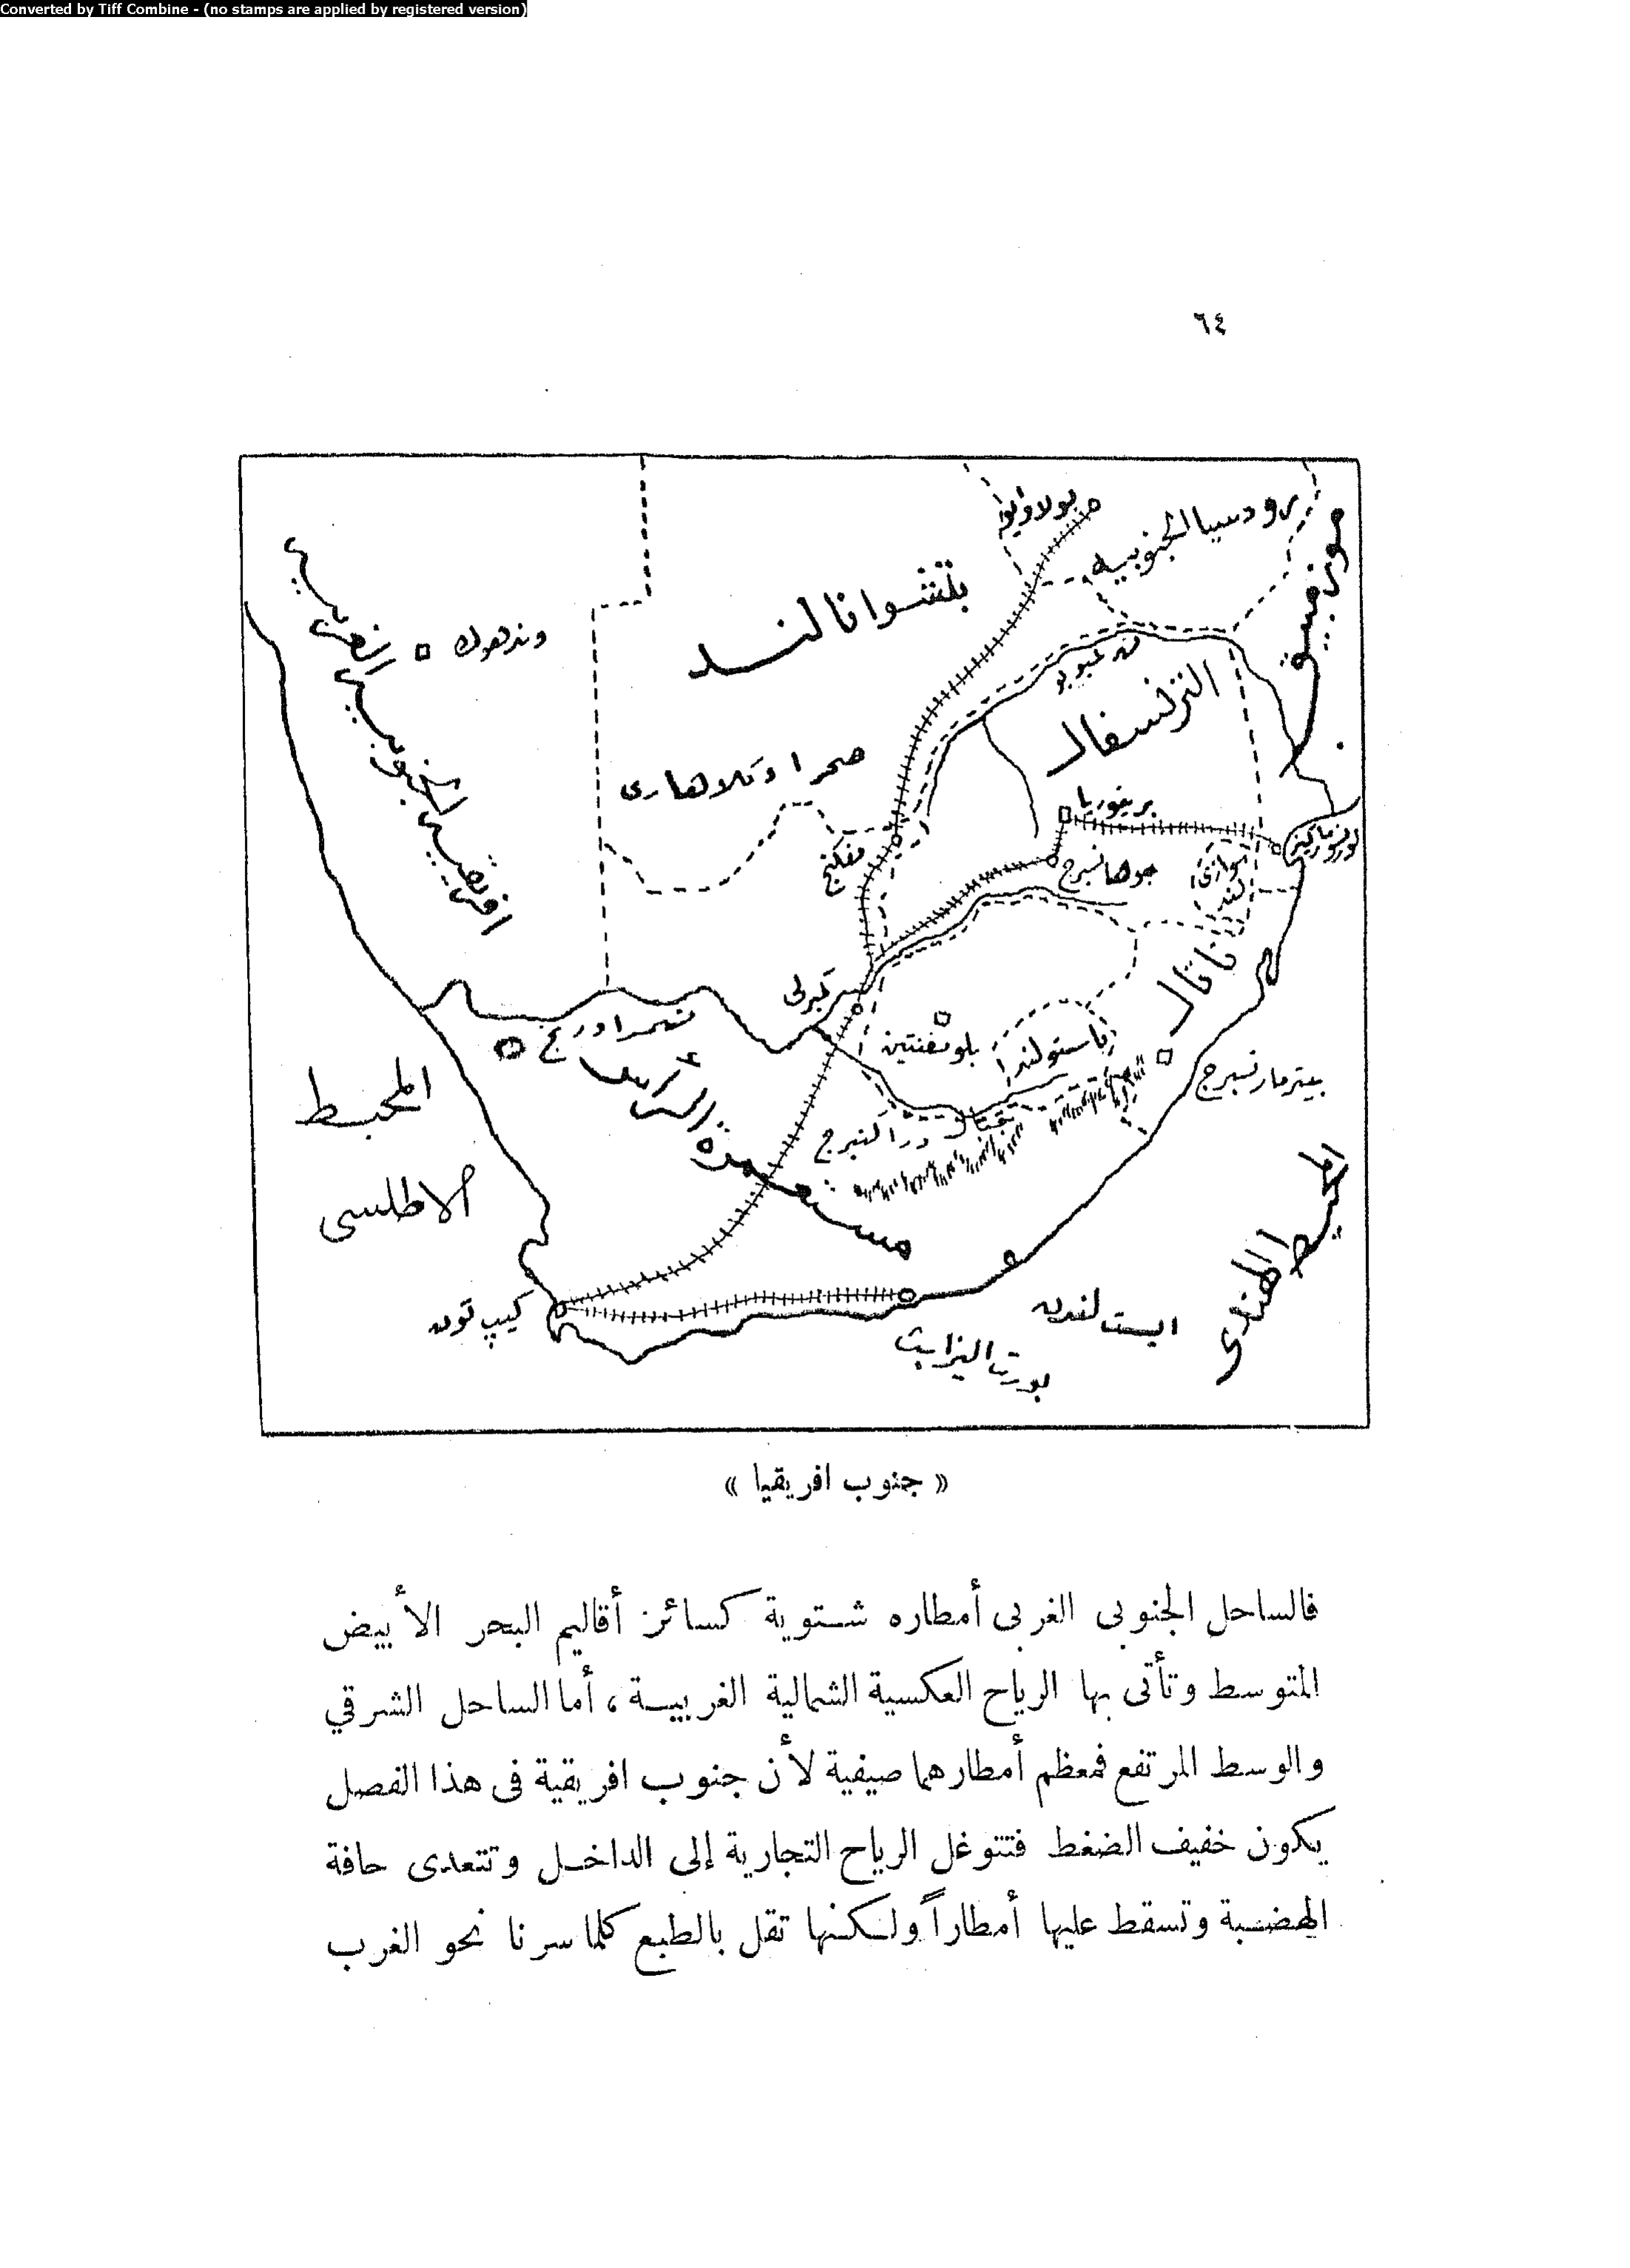 Converted by Tiff Combine - (no stamps are applied by registered version)
٦٤
بولاوايو
رودسيا الجنوبيه
موزمبيق
بتشوانالند
وندهوك
افريقيه الجنوبيه الغربيه
نهر لمبوبو
الترنسفال
صحراء كلاهارى
بريتوريا
لورنزو ماركيز
مفكنج
جوهانسبرج
سوازى لند
ناتال
كمبرلى
نهر اورنج
بلومفنتين
باستولند
بيترمارتسبرج
المحيط
الاطلسى
مستعمرة الرأس
جبال دراكنبرج
المحيط الهندى
كيپ تون
ايست لندن
بورت اليزابيث
« جنوب افريقيا »
فالساحل الجنوبى الغربى أمطاره شتوية كسائر أقاليم البحر الأبيض
المتوسط وتأتى بها الرياح العكسية الشمالية الغربية ، أما الساحل الشرقي
والوسط المرتفع فمعظم أمطارهما صيفية لأن جنوب افريقية فى هذا الفصل
يكون خفيف الضغط فتتوغل الرياح التجارية إلى الداخل وتتعدى حافة
الهضبة وتسقط عليها أمطاراً ولكنها تقل بالطبع كلما سرنا نحو الغرب